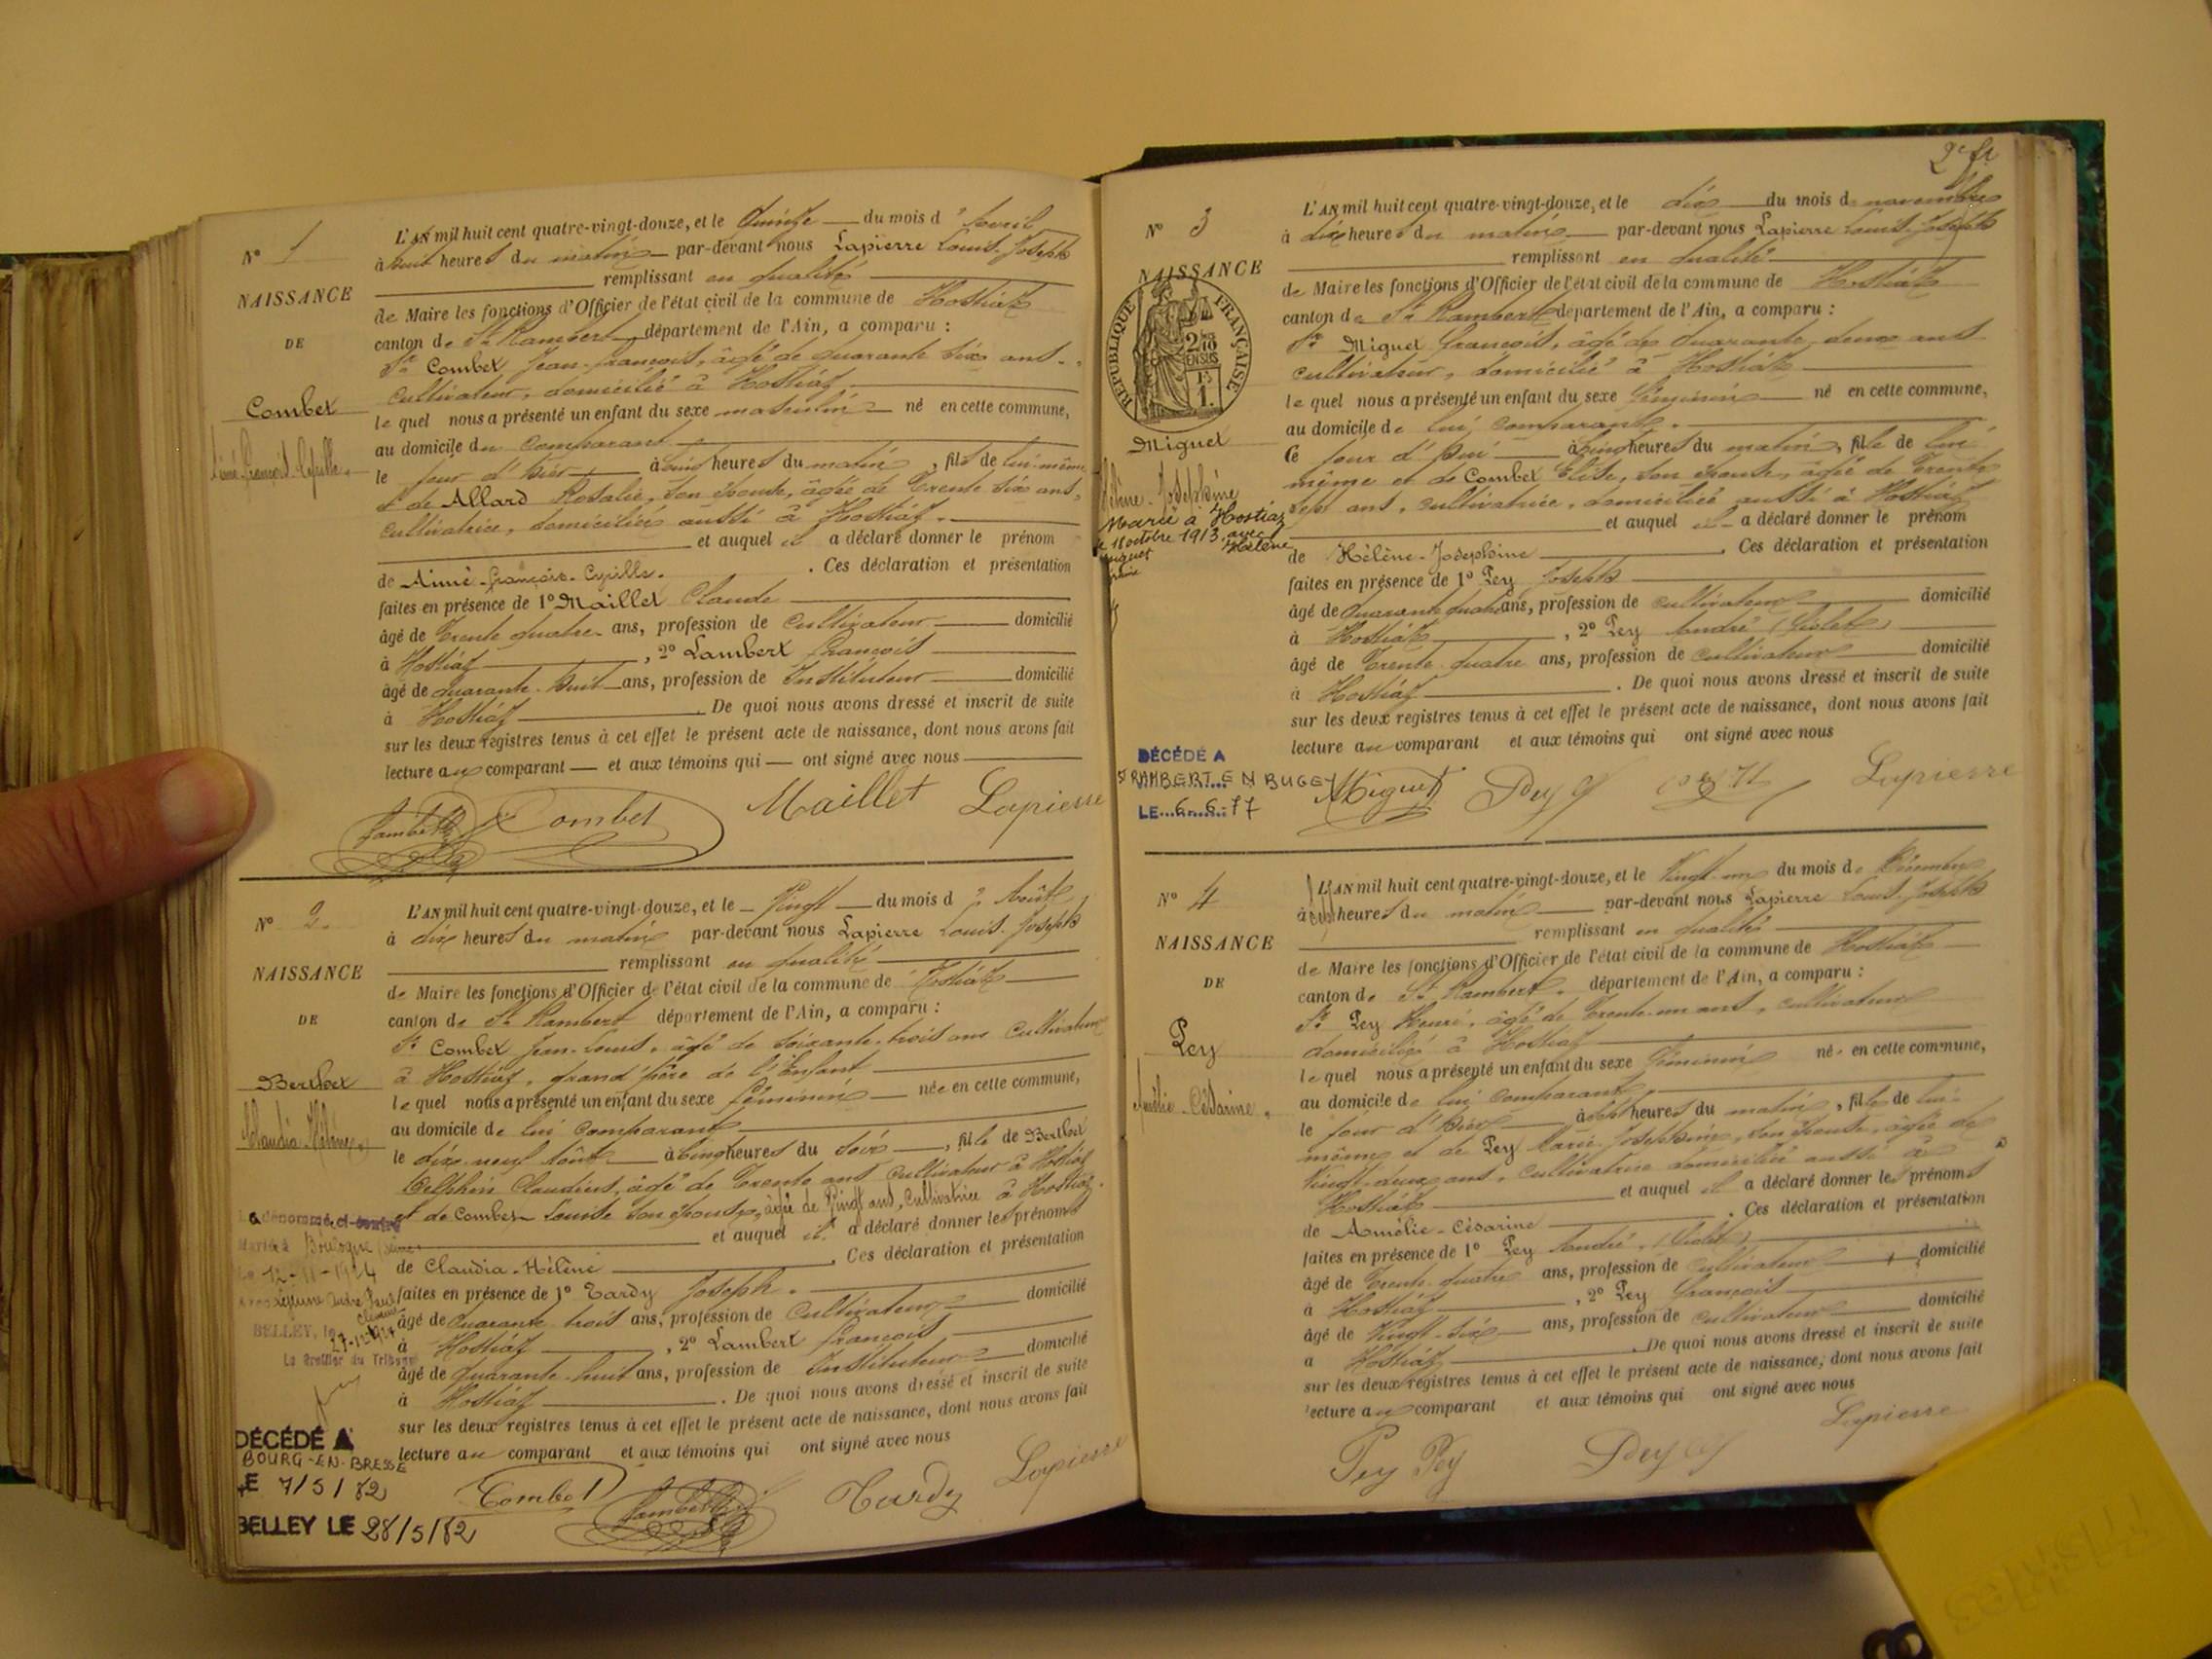 N° 1
NAISSANCE
DE
Combet
Aimé-François-Cyrille.
L'AN mil huit cent quatre-vingt-douze, et le Quinze du mois d'Avril
à huit heures du matin par-devant nous Lapierre Louis-Joseph
remplissant en qualité
de Maire les fonctions d'Officier de l'état civil de la commune de Hostiaz
canton de St Rambert département de l'Ain, a comparu :
Sr Combet Jean-François, âgé de quarante six ans
cultivateur, domicilié à Hostiaz,
le quel nous a présenté un enfant du sexe masculin né en cette commune,
au domicile du comparant
le jour d'hier à heures du matin, fils de lui-même
et de Allard Rosalie, son épouse, âgée de Trente six ans,
cultivatrice, domiciliée aussi à Hostiaz.
et auquel il a déclaré donner le prénom
de Aimé-François-Cyrille. Ces déclaration et présentation
faites en présence de 1° Maillet Claude
âgé de Trente quatre ans, profession de Cultivateur domicilié
à Hostiaz, 2° Lambert François
âgé de quarante-huit ans, profession de Instituteur domicilié
à Hostiaz. De quoi nous avons dressé et inscrit de suite
sur les deux registres tenus à cet effet le présent acte de naissance, dont nous avons fait
lecture au comparant et aux témoins qui ont signé avec nous
Lambert Combet Maillet Lapierre
N° 2.
NAISSANCE
DE
Berthet
Claudia-Hélène.
L'AN mil huit cent quatre-vingt-douze, et le Vingt du mois d'Août
à dix heures du matin par-devant nous Lapierre Louis-Joseph
remplissant en qualité
de Maire les fonctions d'Officier de l'état civil de la commune de Hostiaz
canton de St Rambert département de l'Ain, a comparu :
Sr Combet Jean-Louis, âgé de soixante-trois ans Cultivateur
à Hostiaz, grand'père de l'Enfant
le quel nous a présenté un enfant du sexe féminin née en cette commune,
au domicile de lui comparant
le dix-neuf Août à cinq heures du soir, fille de Berthet
Delphin Claudius, âgé de Trente ans Cultivateur à Hostiaz
et de Combet Louise son épouse, âgée de Vingt ans, Cultivatrice à Hostiaz.
et auquel il a déclaré donner les prénoms
de Claudia-Hélène. Ces déclaration et présentation
faites en présence de 1° Tardy Joseph.
âgé de Quarante trois ans, profession de Cultivateur domicilié
à Hostiaz, 2° Lambert François
âgé de quarante-huit ans, profession de Instituteur domicilié
à Hostiaz. De quoi nous avons dressé et inscrit de suite
sur les deux registres tenus à cet effet le présent acte de naissance, dont nous avons fait
lecture au comparant et aux témoins qui ont signé avec nous
Combet Lambert Tardy Lapierre
La dénommée ci-contre
Mariée à Boulogne (Seine)
Le 12-11-1924
avec Lejeune André Paul
BELLEY, le
Le Greffier du Tribunal
DÉCÉDÉ A
BOURG-EN-BRESSE
LE 7/5/82
BELLEY LE 28/5/82
2e ft
N° 3
NAISSANCE
RÉPUBLIQUE FRANÇAISE
Miguet
Hélène-Joséphine
Marié à Hostiaz
le 18 octobre 1913, avec
Miguet
Hélène
L'AN mil huit cent quatre-vingt-douze, et le dix du mois de novembre
à dix heures du matin par-devant nous Lapierre Louis-Joseph
remplissant en qualité
de Maire les fonctions d'Officier de l'état civil de la commune de Hostiaz
canton de St Rambert département de l'Ain, a comparu :
Sr Miguet François, âgé de Quarante deux ans
cultivateur, domicilié à Hostiaz
le quel nous a présenté un enfant du sexe féminin né en cette commune,
au domicile de lui, comparant.
Ce jour d'hui à cinq heures du matin, fille de lui
même et de Combet Elise, son épouse, âgée de Trente
sept ans, cultivatrice, domiciliée aussi à Hostiaz
et auquel il a déclaré donner le prénom
de Hélène-Joséphine. Ces déclaration et présentation
faites en présence de 1° Pey Joseph
âgé de quarante quatre ans, profession de cultivateur domicilié
à Hostiaz, 2° Pey André (Violet)
âgé de Trente-quatre ans, profession de cultivateur domicilié
à Hostiaz. De quoi nous avons dressé et inscrit de suite
sur les deux registres tenus à cet effet le présent acte de naissance, dont nous avons fait
lecture au comparant et aux témoins qui ont signé avec nous
DÉCÉDÉ A
ST RAMBERT EN BUGEY
LE 6-6-77
Miguet Pey Lapierre
N° 4
NAISSANCE
DE
Pey
Amélie-Césarine.
L'AN mil huit cent quatre-vingt-douze, et le Vingt-un du mois de Décembre
à sept heures du matin par-devant nous Lapierre Louis-Joseph
remplissant en qualité
de Maire les fonctions d'Officier de l'état civil de la commune de Hostiaz
canton de St Rambert. département de l'Ain, a comparu :
Sr Pey Henri, âgé de Trente-un ans, cultivateur
domicilié à Hostiaz
le quel nous a présenté un enfant du sexe féminin né en cette commune,
au domicile de lui comparant
le jour d'hier à sept heures du matin, fille de lui-
même et de Pey Marie-Joséphine, son épouse, âgée de
Vingt-deux ans, cultivatrice domiciliée aussi à
Hostiaz et auquel il a déclaré donner les prénoms
de Amélie-Césarine. Ces déclaration et présentation
faites en présence de 1° Pey André, (Violet)
âgé de Trente-quatre ans, profession de Cultivateur domicilié
à Hostiaz, 2° Pey François
âgé de Vingt-six ans, profession de Cultivateur domicilié
à Hostiaz. De quoi nous avons dressé et inscrit de suite
sur les deux registres tenus à cet effet le présent acte de naissance, dont nous avons fait
lecture au comparant et aux témoins qui ont signé avec nous
Pey Pey Pey Lapierre